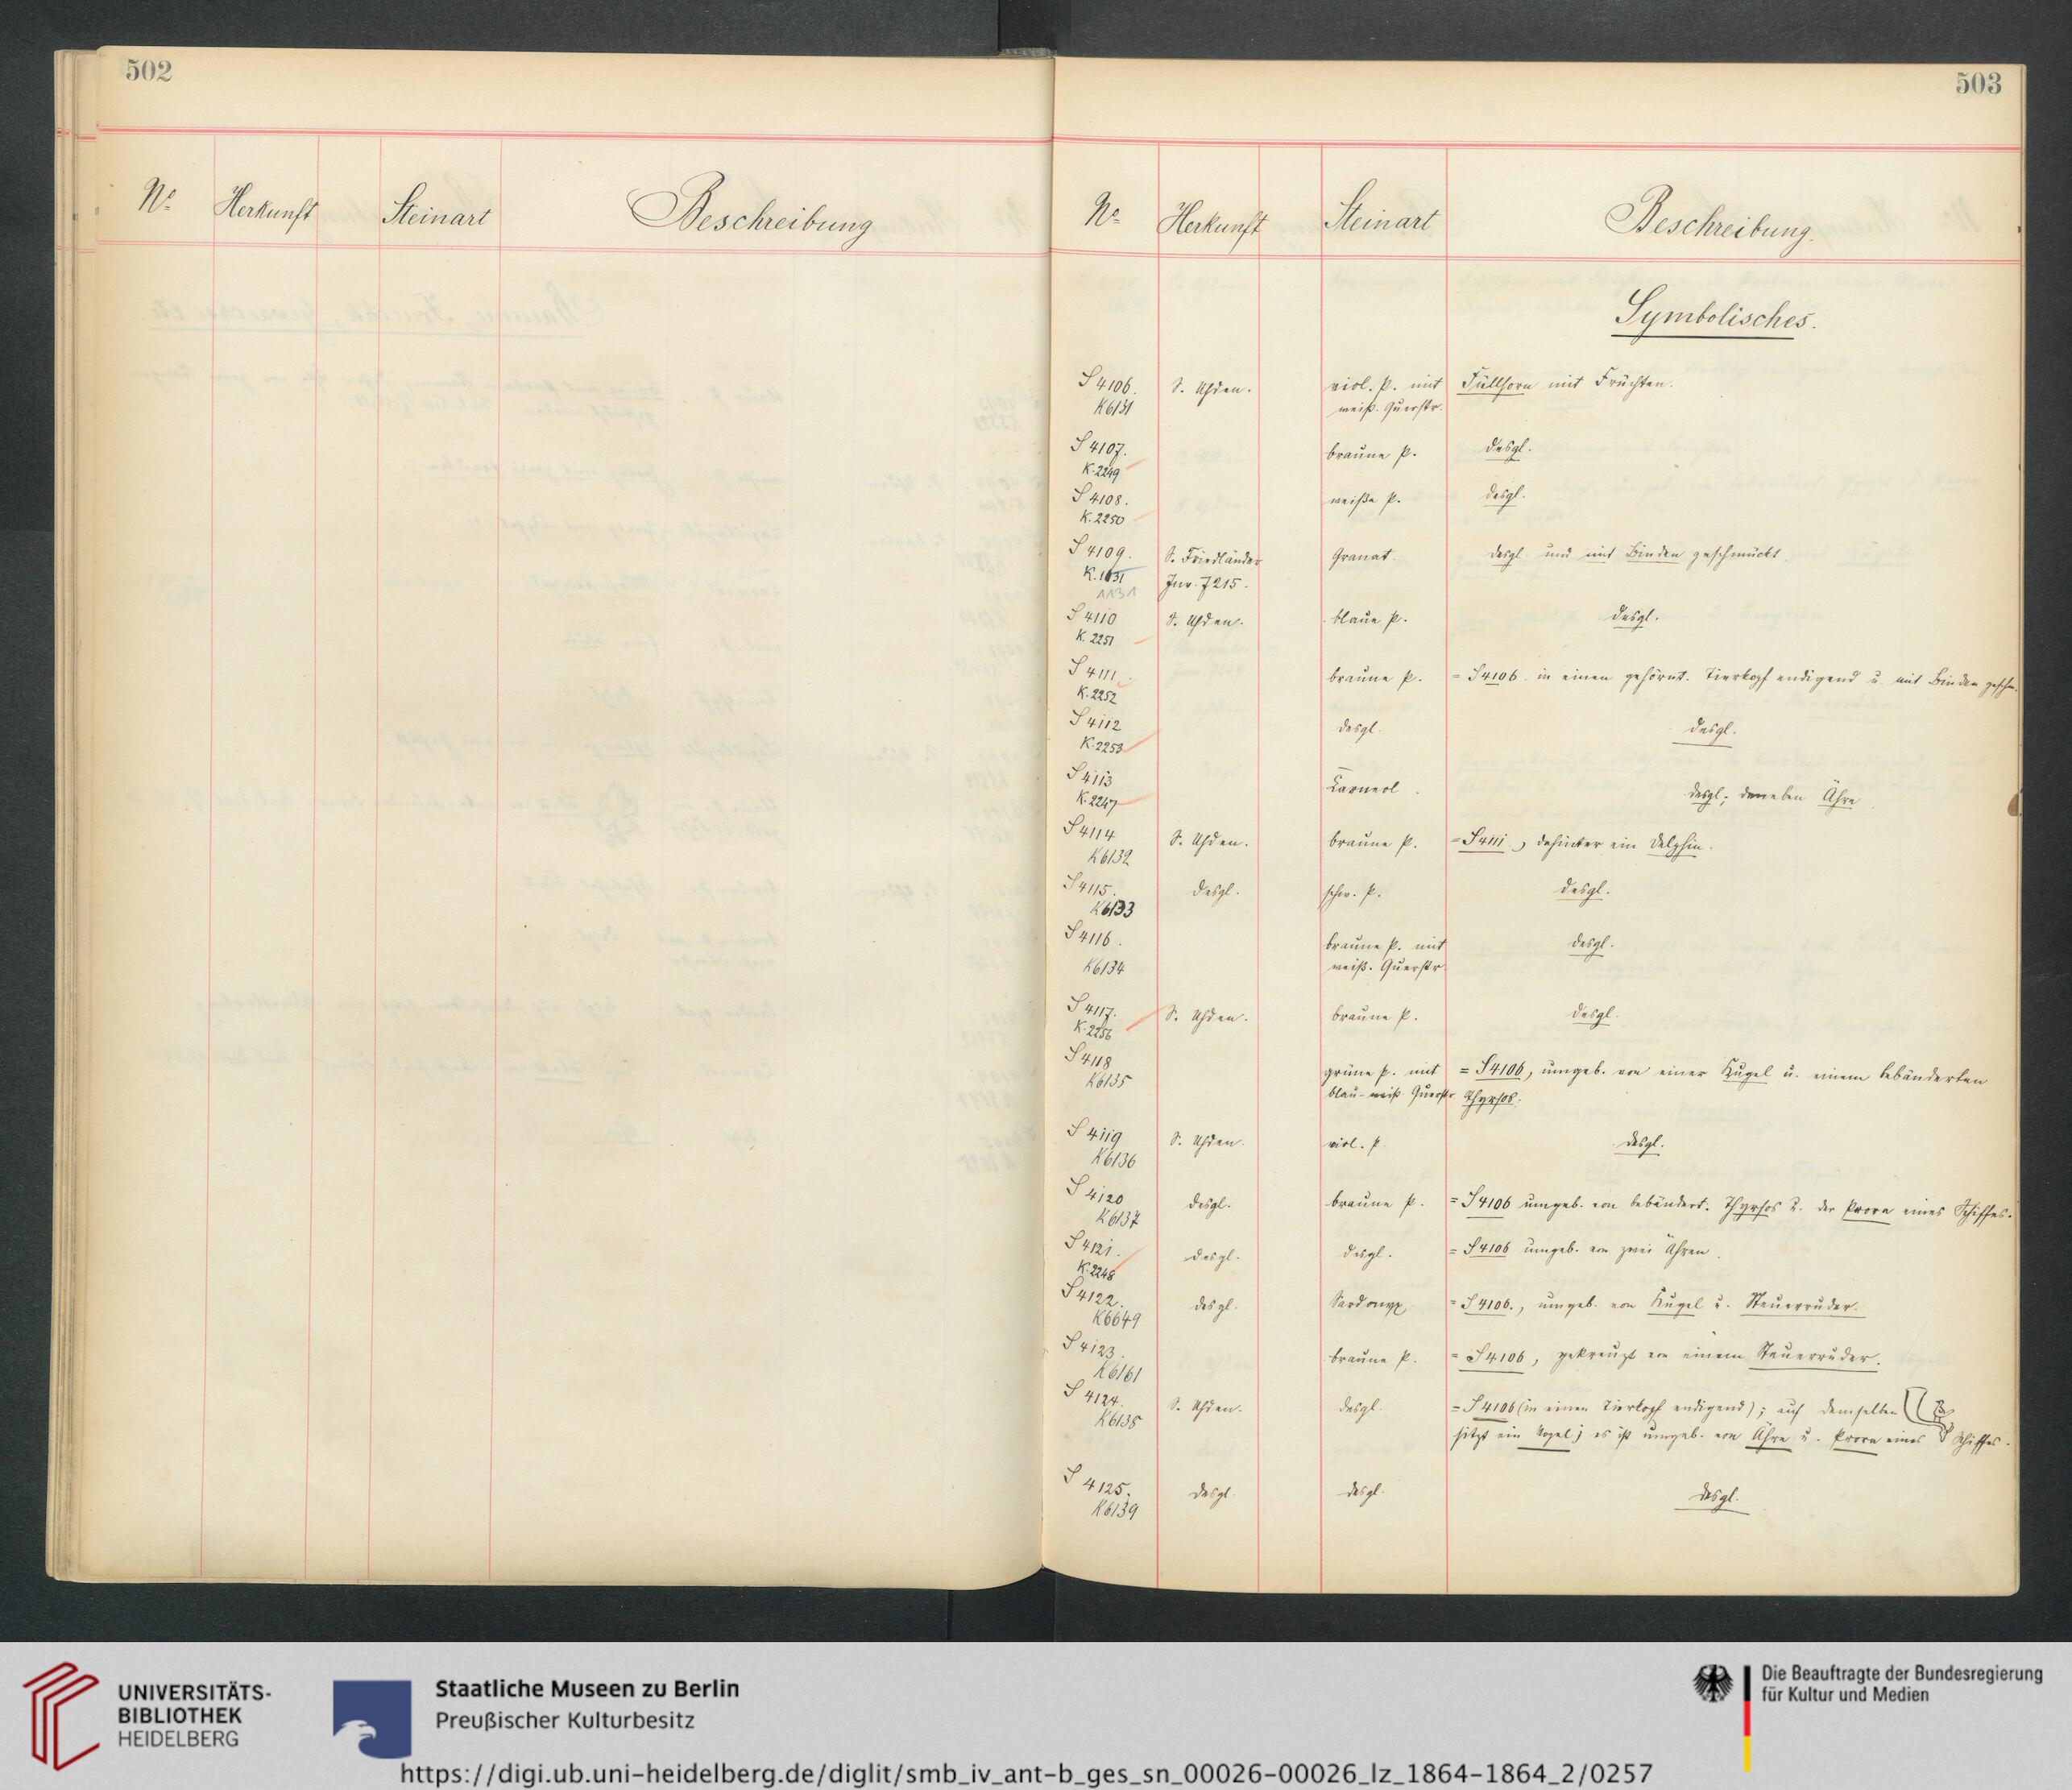 502
Nº Herkunft Steinart Beschreibung
503
Nº Herkunft Steinart Beschreibung.
Symbolisches.
S 4106. S. Uhden. viol. P. mit Füllhorn mit Früchten.
K6131 weiß. Querstr.
S 4107. braune P. desgl.
K.2249
S 4108. weiße P. desgl.
K.2250
S 4109. S. Friedländer Granat. desgl. und mit Binden geschmückt.
K.1131 Inv. 7215.
1131
S 4110 S. Uhden. blaue P. desgl.
K.2251
S 4111. braune P. = S 4106 in einen gehörnt. Tierkopf endigend u. mit Binden geschm.
K.2252
S 4112 desgl. desgl.
K.2253
S 4113 Karneol. desgl.; daneben Ähre.
K.2247
S 4114 S. Uhden. braune P. = S 4111, dahinter ein Delphin.
K6132
S 4115. desgl. schw. P. desgl.
K6133
S 4116. braune P. mit desgl.
K6134 weiß. Querstr.
S 4117. S. Uhden. braune P. desgl.
K.2256
S 4118 grüne P. mit = S 4106, umgeb. von einer Kugel u. einem bebänderten
K6135 blau-weiß Querstr. Thyrsos.
S 4119 S. Uhden. viol. P. desgl.
K6136
S 4120 desgl. braune P. = S 4106 umgeb. von bebändert. Thyrsos u. der Prora eines Schiffes.
K6137
S 4121. desgl. desgl. = S 4106 umgeb. von zwei Ähren.
K.2248
S 4122. desgl. Sardonyx = S 4106., umgeb. von Kugel u. Steuerruder.
K6649
S 4123. braune P. = S 4106, gekreuzt von einem Steuerruder.
K6161
S 4124. S. Uhden. desgl. = S 4106 (in einen Tierkopf endigend); auf demselben
K6138 sitzt ein Vogel; es ist umgeb. von Ähre u. Prora eines Schiffes.
S 4125. desgl. desgl. desgl.
K6139
UNIVERSITÄTS-
BIBLIOTHEK
HEIDELBERG
Staatliche Museen zu Berlin
Preußischer Kulturbesitz
Die Beauftragte der Bundesregierung
für Kultur und Medien
https://digi.ub.uni-heidelberg.de/diglit/smb_iv_ant-b_ges_sn_00026-00026_lz_1864-1864_2/0257